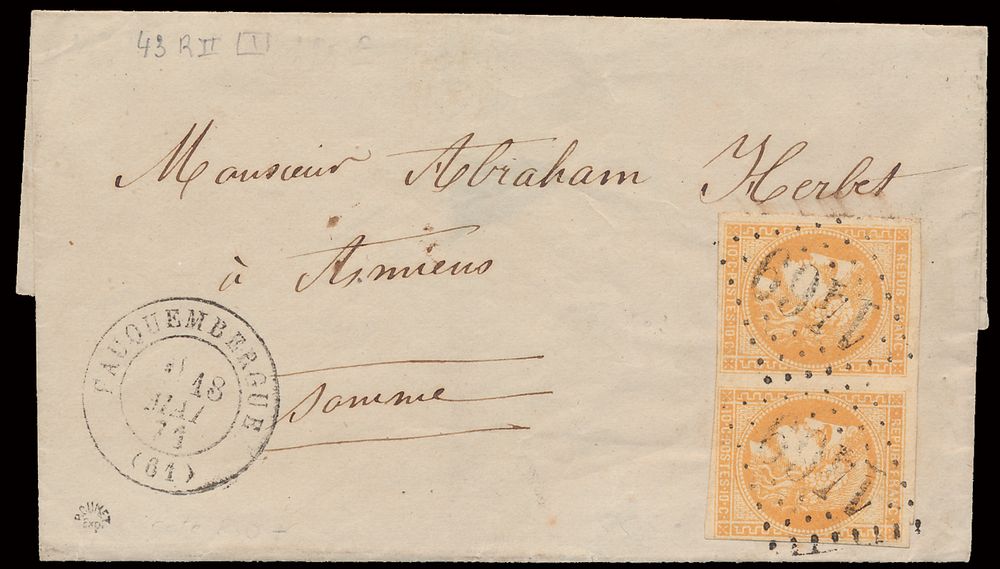 43 R II (1)
Monsieur Abraham Herbet
à Amiens
Somme
FAUQUEMBERGUE
18
MAI
71
(61)
REPUB. FRANC.
10c POSTES 10c
REPUB. FRANC.
10c POSTES 10c